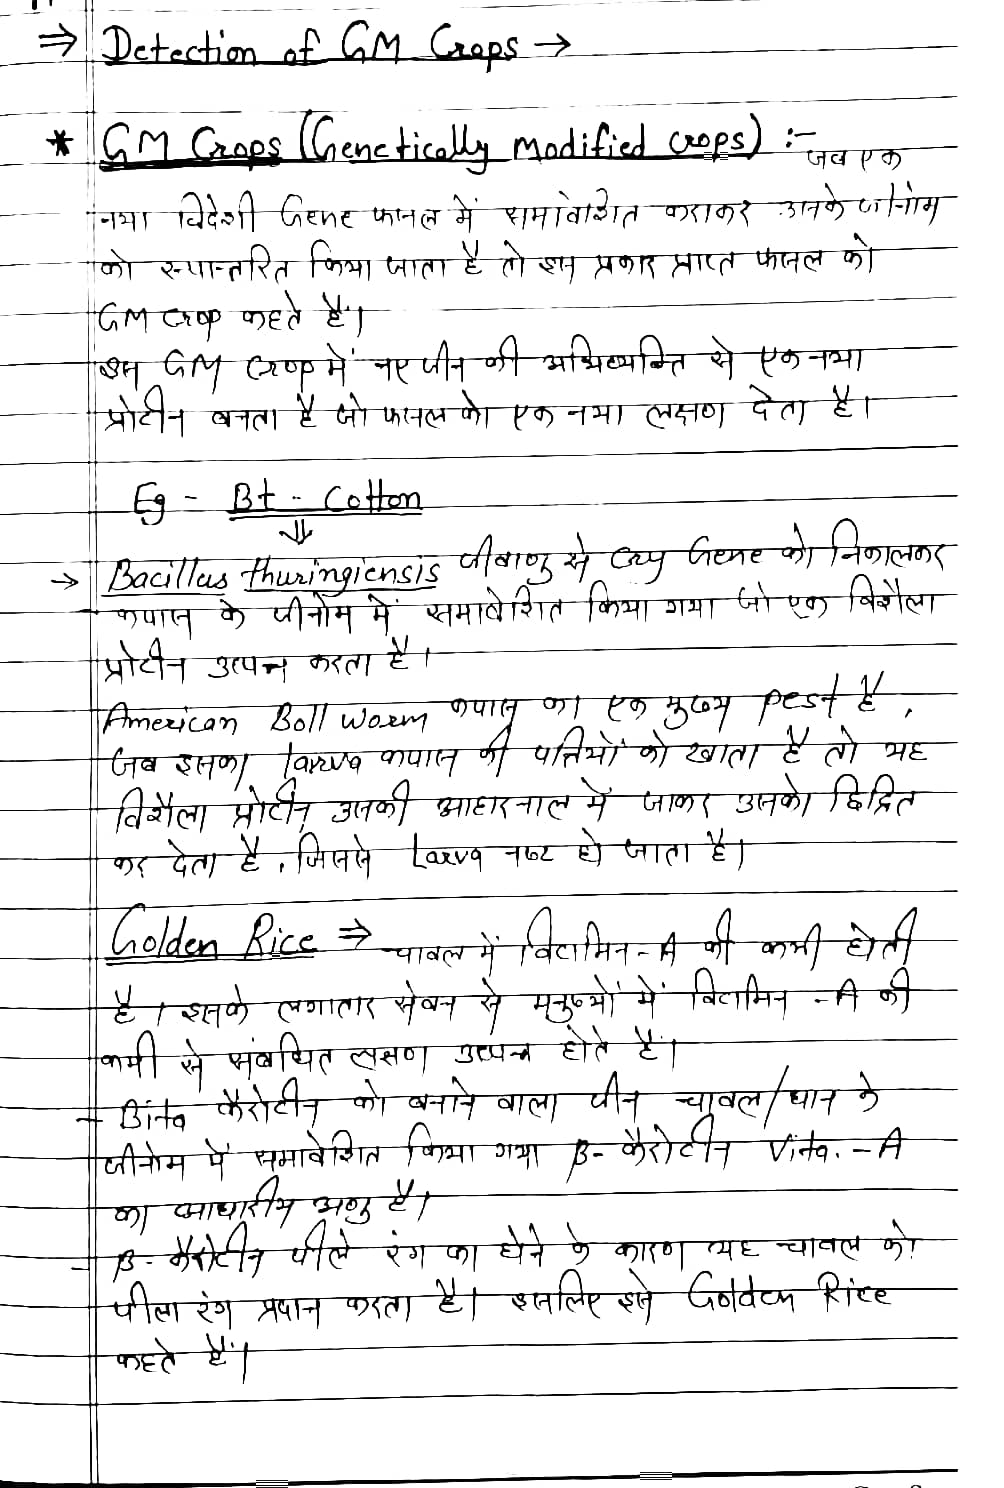 ⇒ Detection of GM Crops →
* GM Crops (Genetically Modified crops) :- जब एक
नया विदेशी Gene फसल में समावेशित कराकर उसके जीनोम
को रूपान्तरित किया जाता है तो इस प्रकार प्राप्त फसल को
GM Crop कहते हैं।
इस GM Crop में नए जीन की अभिव्यक्ति से एक नया
प्रोटीन बनता है जो फसल को एक नया लक्षण देता है।
Eg - Bt - Cotton
⇓
→ Bacillus thuringiensis जीवाणु से Cry Gene को निकालकर
कपास के जीनोम में समावेशित किया गया जो एक विशैला
प्रोटीन उत्पन्न करता है।
American Boll Worm कपास का एक मुख्य pest है,
जब इसका larva कपास की पत्तियों को खाता है तो यह
विशैला प्रोटीन उसकी आहारनाल में जाकर उसको छिद्रित
कर देता है, जिससे Larva नष्ट हो जाता है।
Golden Rice ⇒ चावल में विटामिन-A की कमी होती
है। इसके लगातार सेवन से मनुष्यों में विटामिन -A की
कमी से संबंधित लक्षण उत्पन्न होते हैं।
- Bita कैरोटीन को बनाने वाला जीन चावल/धान के
जीनोम में समावेशित किया गया β- कैरोटीन Vita. - A
का आधारीय अणु है।
- β- कैरोटीन पीले रंग का होने के कारण यह चावल को
पीला रंग प्रदान करता है। इसलिए इसे Golden Rice
कहते हैं।